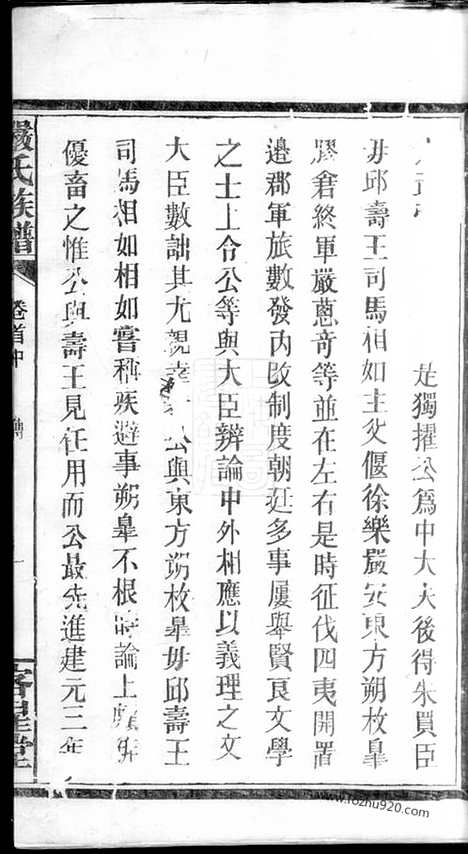 是獨擢公爲中大夫後得朱買臣
毋邱壽王司馬相如主父偃徐樂嚴安東方朔枚皋
膠倉終軍嚴葱奇等並在左右是時征伐四夷開置
邊郡軍旅數發內改制度朝廷多事屢舉賢良文學
之士上令公等與大臣辨論中外相應以義理之文
大臣數詘其尤親幸 公與東方朔枚皋毋邱壽王
司馬相如相如嘗稱疾避事朔皋不根 論上頗俳
優畜之惟公與壽王見任用而公最先進建元三年
嚴氏族譜
卷首中
傳
客星堂
www.fozhu920.com